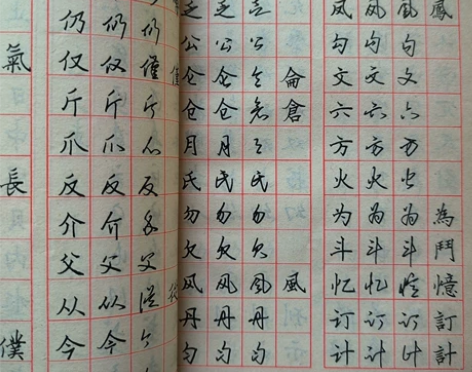 仍 仍 仍 乏 乏 乏 凤 凤 鳳 鳳
氣 仅 仅 僅 公 公 公 勾 勾 勾
斤 斤 斤 仑 仑 仑 侖 文 文 文
爪 爪 爪 仓 仓 仓 倉 六 六 六
反 反 反 月 月 月 方 方 方
長 介 介 介 氏 氏 氏 火 火 火
父 父 父 勿 勿 勿 为 为 为 為
从 从 從 欠 欠 欠 斗 斗 斗 鬥
僕 今 今 今 风 风 風 風 忆 忆 憶 憶
丹 丹 丹 订 订 訂 訂
匀 匀 匀 计 计 計 計